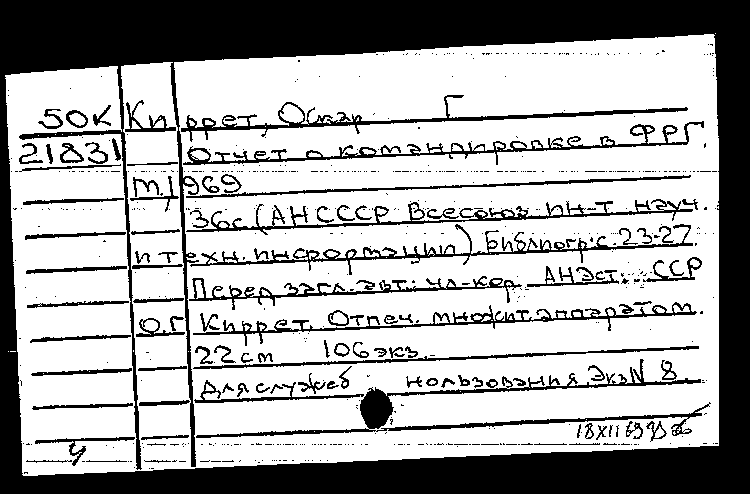 50К Киррет, Оскар Г
21831 Отчет о командировке в ФРГ.
М, 1969
36с (АН СССР Всесоюз ин-т науч.
и техн. информации) Библиогр: с. 23-27
Перед загл. авт: чл-кор АН Эст. ССР
О.Г Киррет. Отпеч. множит. аппаратом.
22 см 106 экз.
Для служеб пользования. Экз N 8
18 XII 69
ч